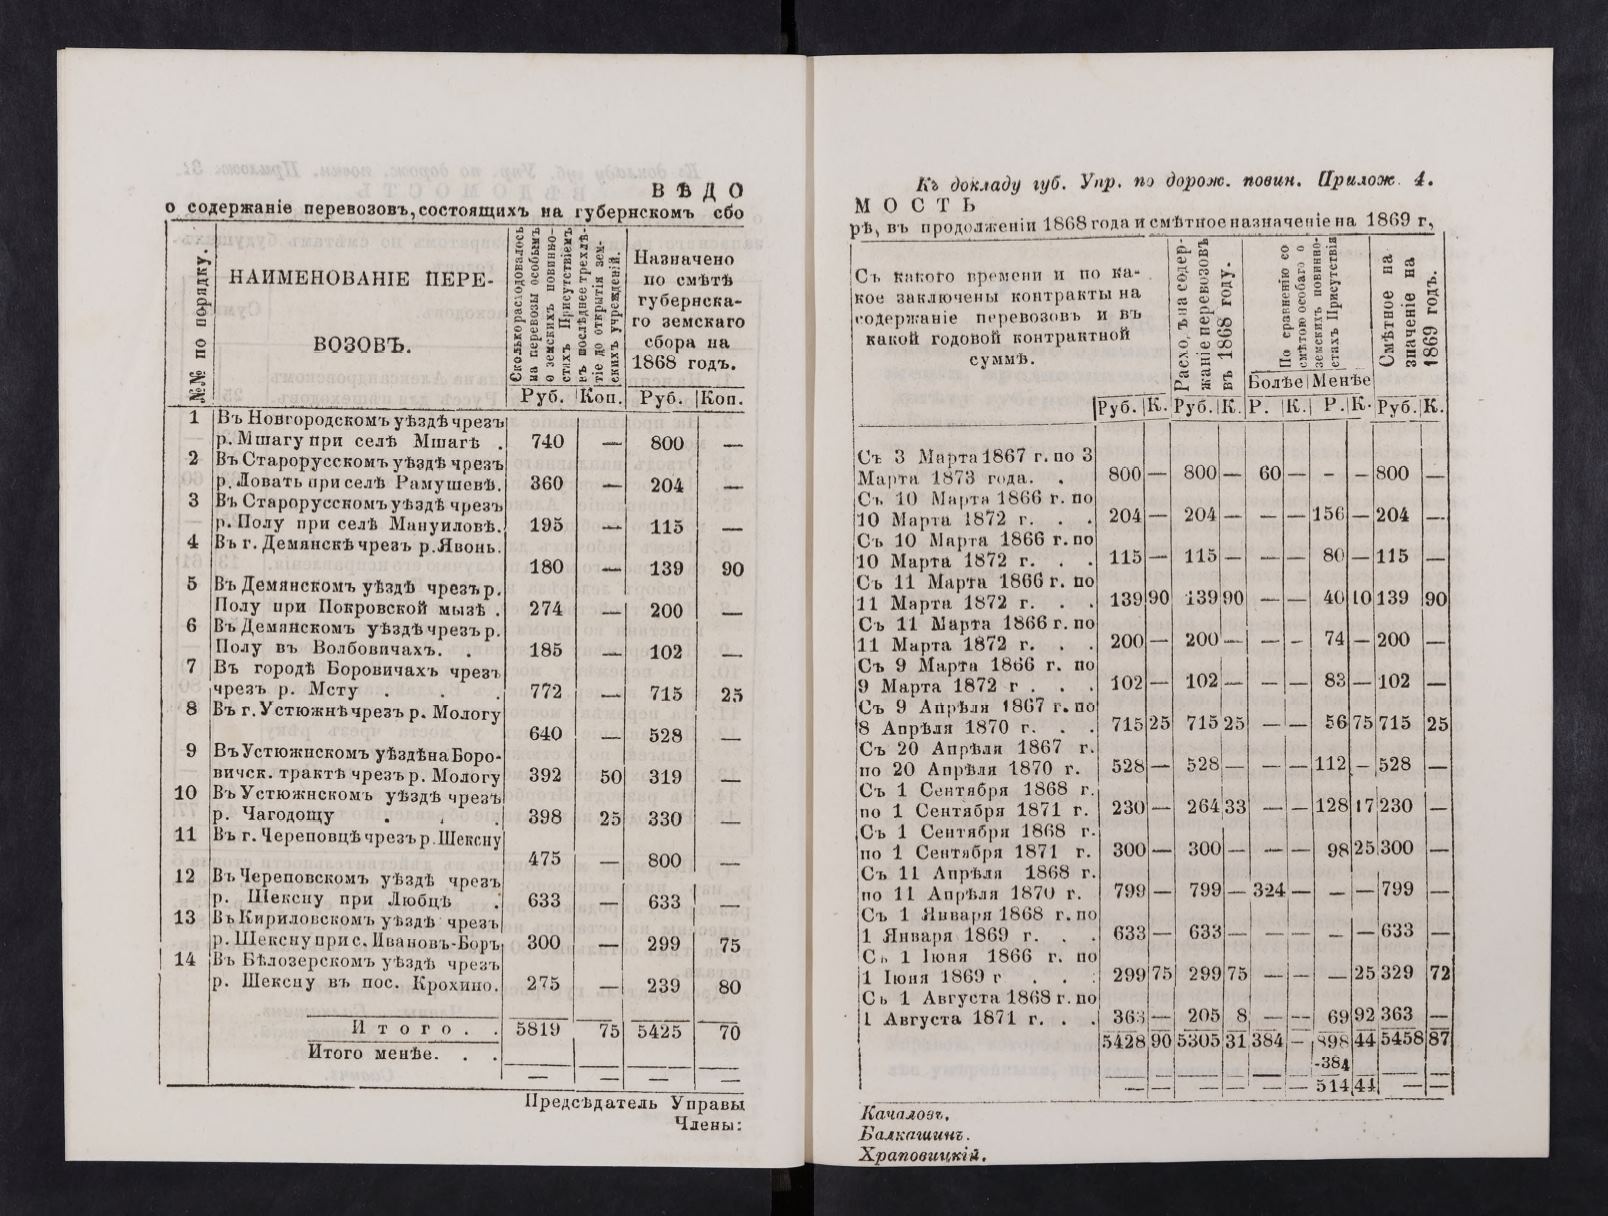 ВѢДО
о содержаніе перевозовъ, состоящихъ на губернскомъ сбо
№№ по порядку.
НАИМЕНОВАНІЕ ПЕРЕ-
ВОЗОВЪ.
Сколько расходовалось
на перевозы особымъ
о земскихъ повинно-
стяхъ Присутствіемъ
въ послѣднее трехлѣ-
тіе до открытія зем-
скихъ учрежденій.
Назначено
по смѣтѣ
губернска-
го земскаго
сбора на
1868 годъ.
Руб. Коп. Руб. Коп.
1 Въ Новгородскомъ уѣздѣ чрезъ
р. Мшагу при селѣ Мшагѣ . 740 — 800 —
2 Въ Старорусскомъ уѣздѣ чрезъ
р. Ловать при селѣ Рамушевѣ. 360 — 204 —
3 Въ Старорусскомъ уѣздѣ чрезъ
р. Полу при селѣ Мануиловѣ. 195 — 115 —
4 Въ г. Демянскѣ чрезъ р. Явонь.
180 — 139 90
5 Въ Демянскомъ уѣздѣ чрезъ р.
Полу при Покровской мызѣ . 274 — 200 —
6 Въ Демянскомъ уѣздѣ чрезъ р.
Полу въ Волбовичахъ. . 185 — 102 —
7 Въ городѣ Боровичахъ чрезъ
чрезъ р. Мсту . . . 772 — 715 25
8 Въ г. Устюжнѣ чрезъ р. Мологу
640 — 528 —
9 Въ Устюжнскомъ уѣздѣ на Боро-
вичск. трактѣ чрезъ р. Мологу 392 50 319 —
10 Въ Устюжнскомъ уѣздѣ чрезъ
р. Чагодощу . . . 398 25 330 —
11 Въ г. Череповцѣ чрезъ р. Шексну
475 — 800 —
12 Въ Череповскомъ уѣздѣ чрезъ
р. Шексну при Любцѣ . 633 — 633 —
13 Въ Кириловскомъ уѣздѣ чрезъ
р. Шексну при с. Ивановъ-Боръ 300 — 299 75
14 Въ Бѣлозерскомъ уѣздѣ чрезъ
р. Шексну въ пос. Крохино. 275 — 239 80
Итого. . 5819 75 5425 70
Итого менѣе. . .
— — — —
Предсѣдатель Управы
Члены:
Къ докладу губ. Упр. по дорож. повин. Прилож. 4.
МОСТЬ
рѣ, въ продолженіи 1868 года и смѣтное назначеніе на 1869 г,
Съ какого времени и по ка-
кое заключены контракты на
содержаніе перевозовъ и въ
какой годовой контрактной
суммѣ.
Расхо, ъ на содер-
жаніе перевозовъ
въ 1868 году.
По сравненію со
смѣтою особаго о
земскихъ повинно-
стяхъ Присутствія
Болѣе Менѣе
Смѣтное на
значеніе на
1869 годъ.
Руб. К. Руб. К. Р. К. Р. К. Руб. К.
Съ 3 Марта 1867 г. по 3
Марта 1873 года. . 800 — 800 — 60 — - — 800 —
Съ 10 Марта 1866 г. по
10 Марта 1872 г. . . 204 — 204 — — — 156 — 204 —
Съ 10 Марта 1866 г. по
10 Марта 1872 г. . . 115 — 115 — — — 80 — 115 —
Съ 11 Марта 1866 г. по
11 Марта 1872 г. . . 139 90 139 90 — — 40 10 139 90
Съ 11 Марта 1866 г. по
11 Марта 1872 г. . . 200 — 200 — — - 74 — 200 —
Съ 9 Марта 1866 г. по
9 Марта 1872 г . . . 102 — 102 — — — 83 — 102 —
Съ 9 Апрѣля 1867 г. по
8 Апрѣля 1870 г. . . 715 25 715 25 — — 56 75 715 25
Съ 20 Апрѣля 1867 г.
по 20 Апрѣля 1870 г. 528 — 528 — — — 112 — 528 —
Съ 1 Сентября 1868 г.
по 1 Сентября 1871 г. 230 — 264 33 — — 128 17 230 —
Съ 1 Сентября 1868 г.
по 1 Сентября 1871 г. 300 — 300 — — — 98 25 300 —
Съ 11 Апрѣля 1868 г.
по 11 Апрѣля 1870 г. 799 — 799 — 324 — — — 799 —
Съ 1 Января 1868 г. по
1 Января 1869 г. . . 633 — 633 — — — — — 633 —
Съ 1 Іюня 1866 г. по
1 Іюня 1869 г . . . 299 75 299 75 — — — 25 329 72
Съ 1 Августа 1868 г. по
1 Августа 1871 г. . . 363 — 205 8 — — 69 92 363 —
5428 90 5305 31 384 — 898 44 5458 87
-384
— — — — — — 514 44 — —
Качаловъ.
Балкашинъ.
Храповицкій.